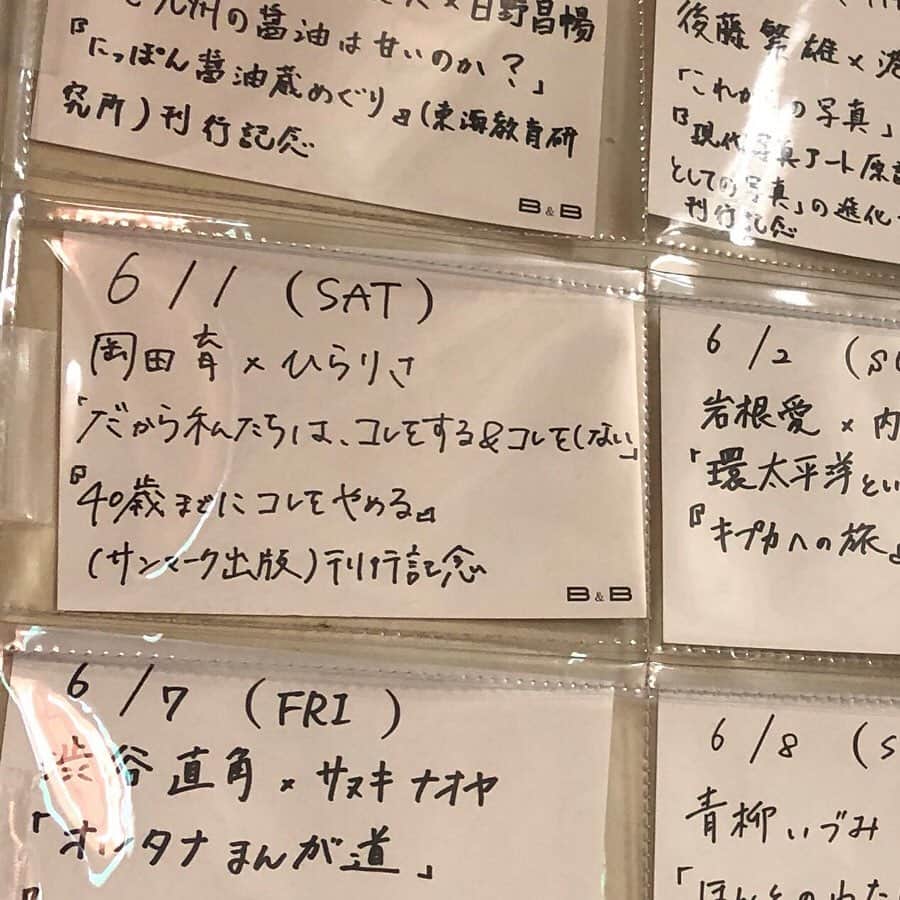 九州の醤油は甘いのか?」
×日野昌暢
『にっぽん醤油蔵めぐり』(東海教育研
究所)刊行記念
B&B
後藤繁雄×港
の写真」
『現代写真アート原論
としての写真」の進化
刊行記念
6/1 (SAT)
岡田育×ひらりさ
「だから私たちは、コレをする&コレをしない」
『40歳までにコレをやめる』
(サンマーク出版)刊行記念
B&B
6/2 (SU
岩根愛×内
「環太平洋とい
『キプカへの旅』
6/7 (FRI)
渋谷直角×サヌキナオヤ
「オルタナまんが道」
6/8 (S
青柳いづみ
「ほんとのわた